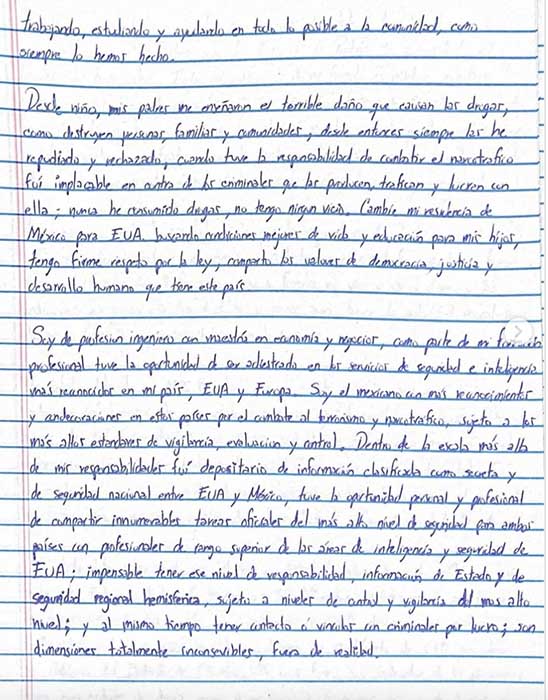 trabajando, estudiando y ayudando en todo lo posible a la comunidad, como
siempre lo hemos hecho.
Desde niño, mis padres me enseñaron el terrible daño que causan las drogas,
como destruyen personas, familias y comunidades, desde entonces siempre las he
repudiado y rechazado, cuando tuve la responsabilidad de combatir el narcotrafico
fuí implacable en contra de los criminales que las producen, trafican y lucren con
ella; nunca he consumido drogas, no tengo ningun vicio. Cambie mi residencia de
México para EUA. buscando condiciones mejores de vida y educación para mis hijos,
tengo firme respeto por la ley, comparto los valores de democracia, justicia y
desarrollo humano que tiene este país.
Soy de profesion ingeniero con maestría en economía y negocios, como parte de mi formación
profesional tuve la oportunidad de ser adiestrado en los servicios de seguridad e inteligencia
más reconocidos en mi país, EUA y Europa. Soy el mexicano con más reconocimientos
y condecoraciones en estos países por el combate al terrorismo y narcotrafico, sujeto a los
más altos estandares de vigilancia, evaluacion y control. Dentro de la escala más alta
de mis responsabilidades fuí depositario de información clasificada como secreta y
de seguridad nacional entre EUA y México, tuve la oportunidad personal y profesional
de compartir innumerables tareas oficiales del más alto nivel de seguridad para ambos
países con profesionales de rango superior de las áreas de inteligencia y seguridad de
EUA; impensable tener ese nivel de responsabilidad, información de Estado y de
seguridad regional hemisferica, sujeto a niveles de control y vigilancia del mas alto
nivel; y al mismo tiempo tener contacto o vinculos con criminales por lucro; son
dimensiones totalmente inconcevibles, fuera de realidad.